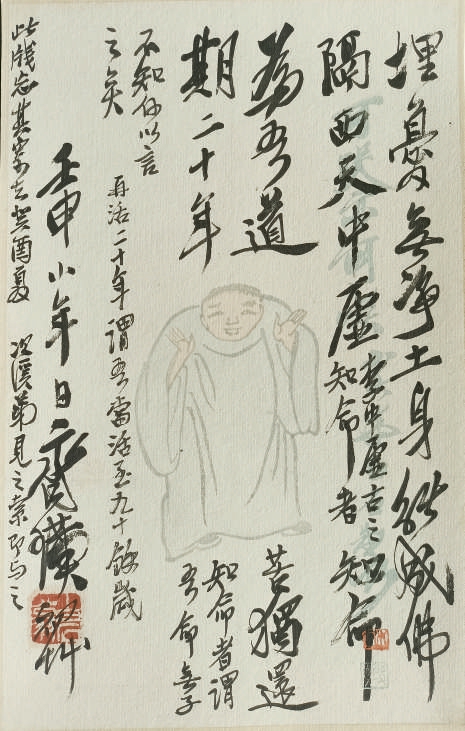 埋憂無淨土身從成佛
隔西天中虛
李中虛古之
知命者
知命
為吾道苦獨還
知命者謂
吾命無子
期二十年
再活二十年謂吾當活至九十餘歲
不知何以言
之矣
壬申小年日齊璜初艸
此牋忘其寄去癸酉夏次溪弟見之索即與之